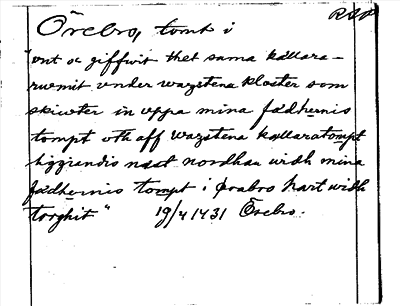 RAP
Örebro, tomt i
"unt oc giffwit thet sama kællara-
rwmit vnder wazstena kloster som
skiwter in vppa mina fædhernis
tompt vth aff wazstena kællaratompt
liggiandis næst nordhan widh mina
fædhernis tompt i Ørabro hart widh
torghit" 19/4 1431 Örebro.